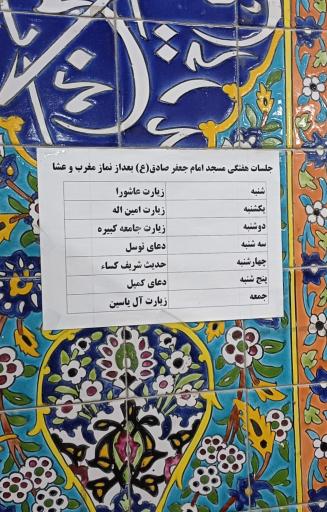 جلسات هفتگی مسجد امام جعفر صادق(ع) بعداز نماز مغرب و عشا
شنبه زیارت عاشورا
یکشنبه زیارت امین اله
دوشنبه زیارت جامعه کبیره
سه شنبه دعای توسل
چهارشنبه حدیث شریف کساء
پنج شنبه دعای کمیل
جمعه زیارت آل یاسین